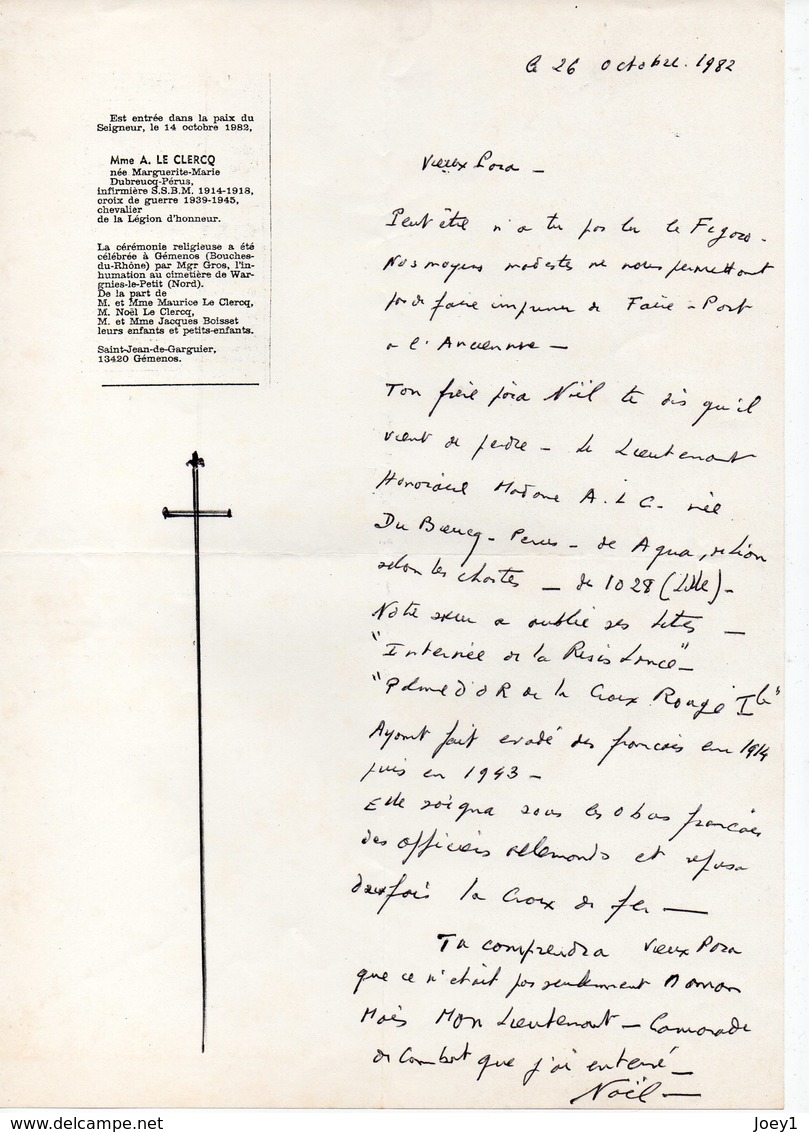 Est entrée dans la paix du
Seigneur, le 14 octobre 1982,
Mme A. LE CLERCQ
née Marguerite-Marie
Dubreucq-Pérus,
infirmière S.S.B.M. 1914-1918,
croix de guerre 1939-1945,
chevalier
de la Légion d'honneur.
La cérémonie religieuse a été
célébrée à Gémenos (Bouches-
du-Rhône) par Mgr Gros, l'in-
humation au cimetière de War-
gnies-le-Petit (Nord).
De la part de
M. et Mme Maurice Le Clercq,
M. Noël Le Clercq,
M. et Mme Jacques Boisset
leurs enfants et petits-enfants.
Saint-Jean-de-Garguier,
13420 Gémenos.
le 26 octobre. 1982
Vieux Para —
Peut être n'a tu pas lu le Figaro.
Nos moyens modestes ne nous permettant
pas de faire imprimer de Faire-Part
a l'Ancienne —
Ton frère para Noël te dis qu'il
vient de perdre — Le Lieutenant
Honoraire Madame A.L.C. née
Du Breucq-Perus — de Aqua, de Lion
selon les chartes — de 1028 (Lille) —
Notre sœur a oublié ses titres —
"Internée de la Résistance" —
"Palme d'OR de la Croix Rouge Ile"
Ayant fait evadé des français en 1914
puis en 1943 —
Elle soigna sous les obus français
des officiers allemands et refusa
deux fois la Croix de fer —
Tu comprendra vieux Para
que ce n'était pas seulement Maman
Mais Mon Lieutenant — Camarade
de Combat que j'ai enterré —
Noël —
Joey1